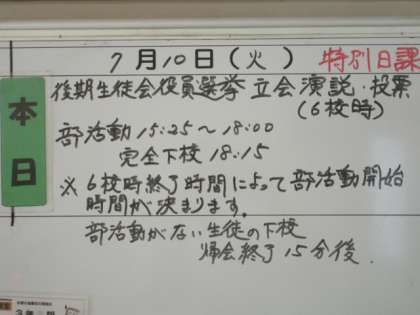 7月10日(火) 特別日課
本日
後期生徒会役員選挙 立会演説・投票
(6校時)
部活動 15:25～18:00
完全下校 18:15
※6校時終了時間によって部活動開始
時間が決まります。
部活動がない生徒の下校
帰会終了15分後.